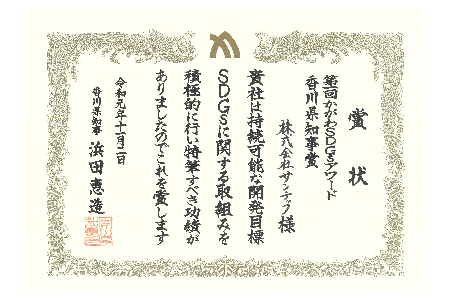 賞状
第一回かがわSDGsアワード
香川県知事賞
株式会社サンテック 様
貴社は持続可能な開発目標
SDGsに関する取組みを
積極的に行い特筆すべき功績が
ありましたのでこれを賞します
令和元年十一月二日
香川県知事 浜田恵造